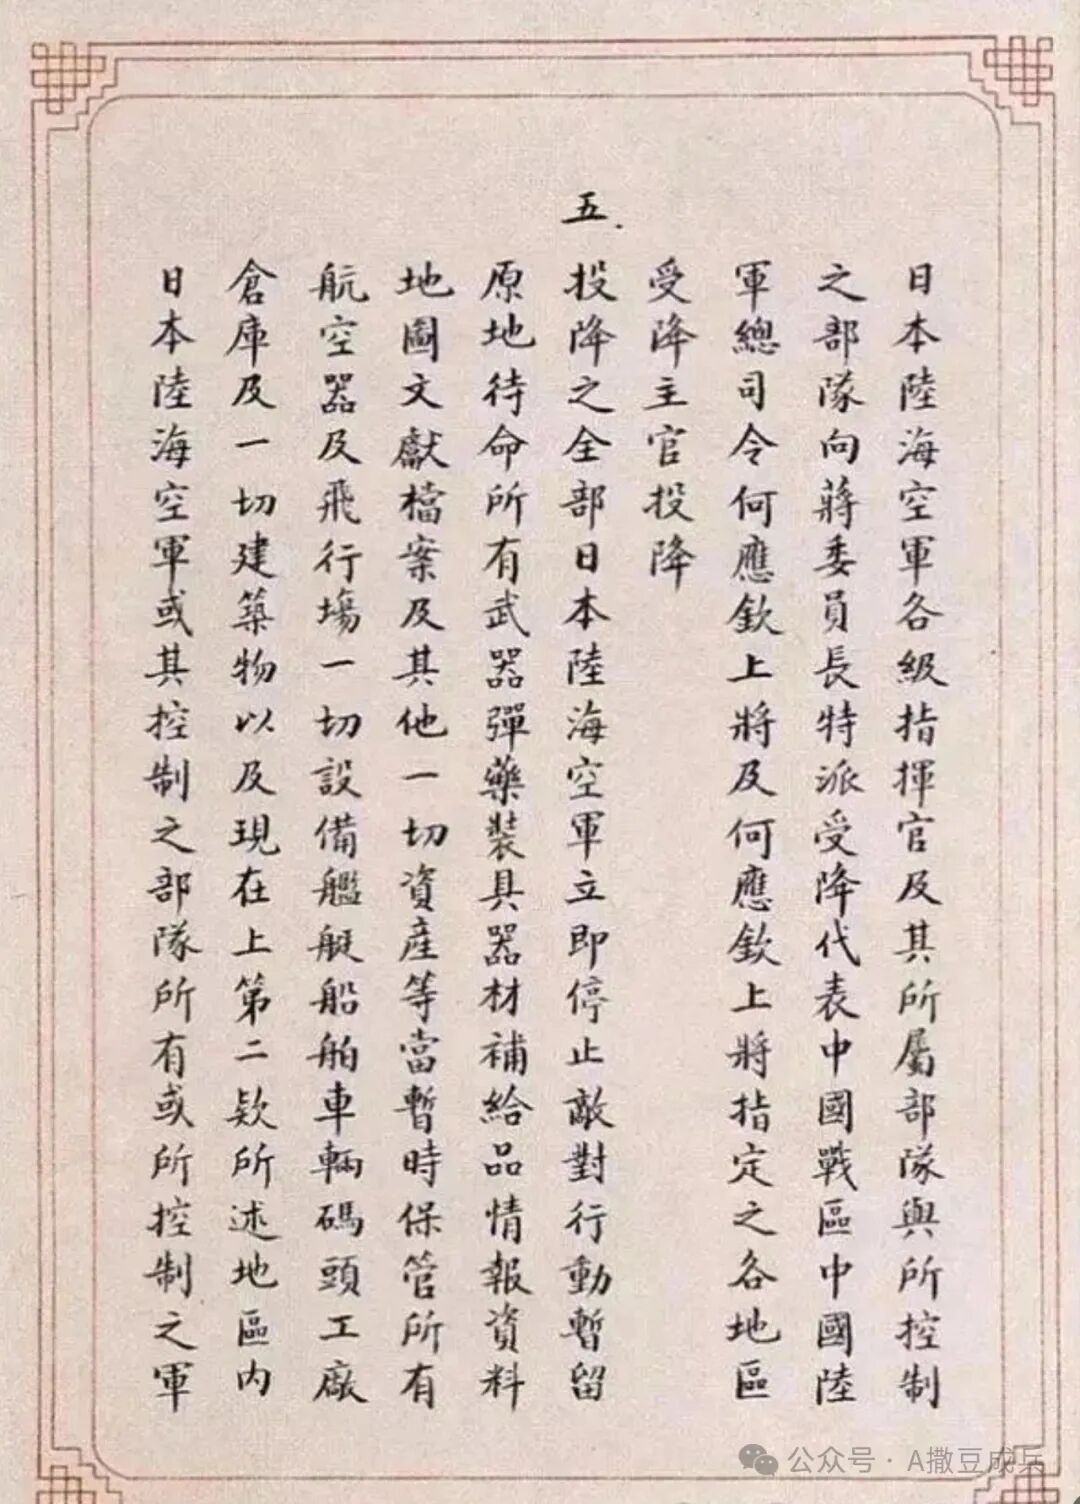 日本陸海空軍各級指揮官及其所屬部隊與所控制
之部隊向蔣委員長特派受降代表中國戰區中國陸
軍總司令何應欽上將及何應欽上將指定之各地區
受降主官投降
五.投降之全部日本陸海空軍立即停止敵對行動暫留
原地待命所有武器彈藥裝具器材補給品情報資料
地圖文獻檔案及其他一切資產等當暫時保管所有
航空器及飛行場一切設備艦艇船舶車輛碼頭工廠
倉庫及一切建築物以及現在上第二款所述地區內
日本陸海空軍或其控制之部隊所有或所控制之軍
公众号·A撒豆成兵